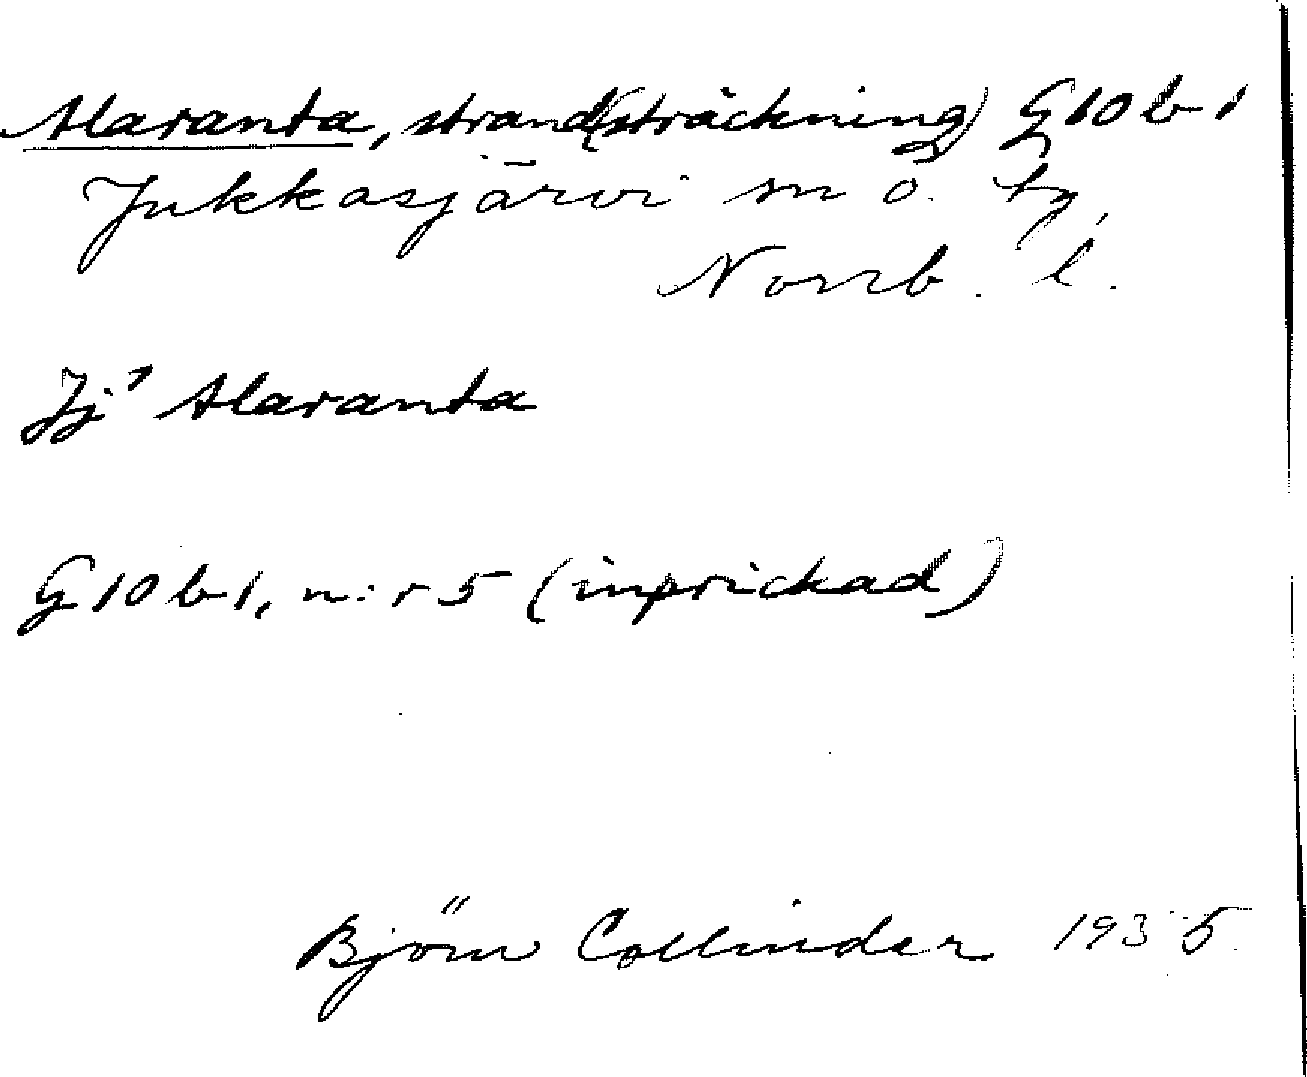 Alaranta, strand(sträckning) G10b1
Jukkasjärvi sn ö. tg,
Norrb. l.
Jj' Alaranta
G10b1, n:r 5 (inprickad)
Björn Collinder 1935